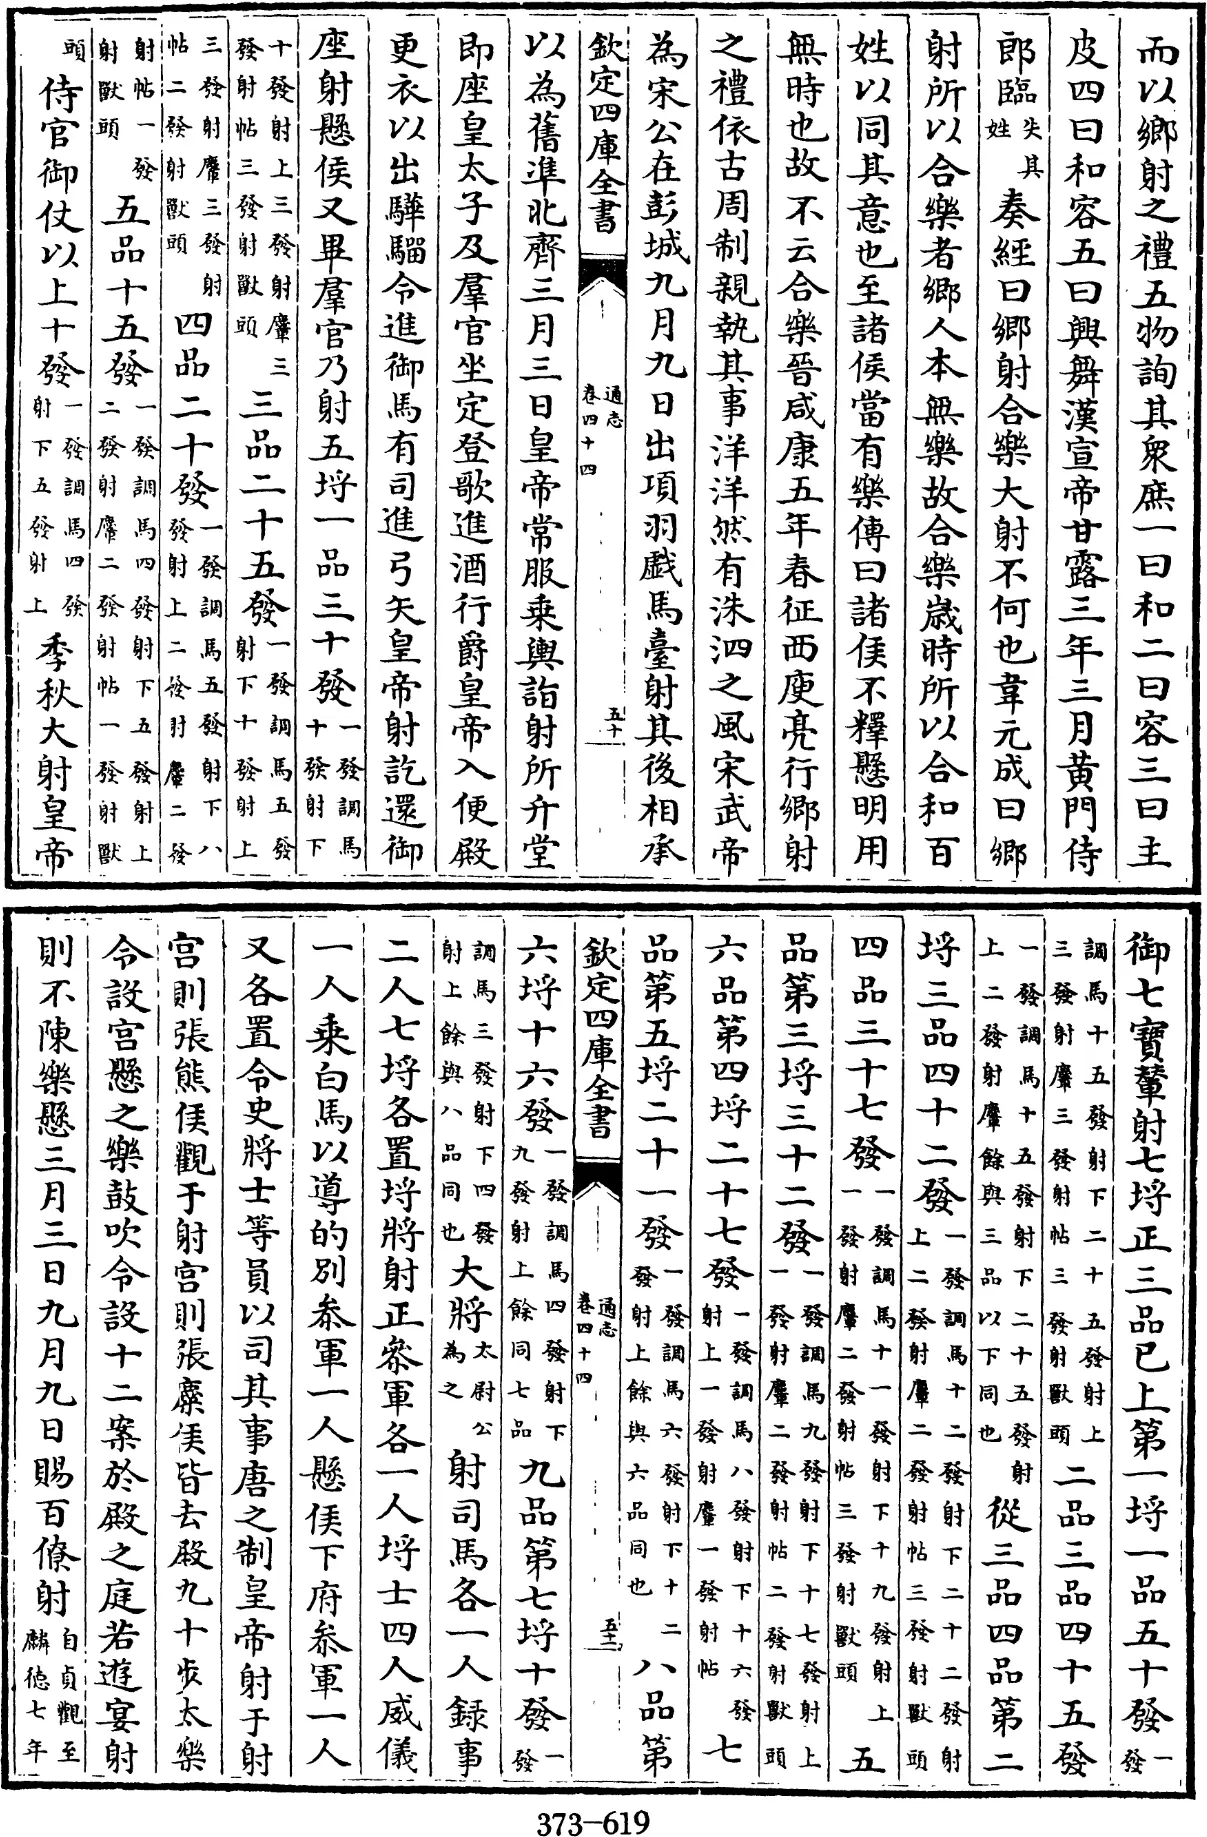 而以鄉射之禮五物詢其衆庶一曰和二曰容三曰主
皮四曰和容五曰興舞漢宣帝甘露三年三月黃門侍
郎臨失其姓奏經曰鄉射合樂大射不何也韋元成曰鄉
射所以合樂者鄉人本無樂故合樂歲時所以合和百
姓以同其意也至諸侯當有樂傳曰諸侯不釋懸明用
無時也故不云合樂晉咸康五年春征西庾亮行鄉射
之禮依古周制親執其事洋洋然有洙泗之風宋武帝
為宋公在彭城九月九日出項羽戲馬臺射其後相承
欽定四庫全書 通志卷四十四 五十
以為舊準北齊三月三日皇帝常服乗輿詣射所升堂
即座皇太子及羣官坐定登歌進酒行爵皇帝入便殿
更衣以出驊騮令進御馬有司進弓矢皇帝射訖還御
座射懸侯又畢羣官乃射五埒一品三十發一發調馬十發射下
十發射上三發射麞三發射帖三發射獸頭三品二十五發一發調馬五發射下十發射上
三發射麞三發射帖二發射獸頭四品二十發一發調馬五發射下八發射上二發射麞二發
射帖一發射獸頭五品十五發一發調馬四發射下五發射上二發射麞二發射帖一發射獸
頭侍官御仗以上十發一發調馬四發射下五發射上季秋大射皇帝
御七寶輦射七埒正三品已上第一埒一品五十發一發
調馬十五發射下二十五發射上三發射麞三發射帖三發射獸頭二品三品四十五發
一發調馬十五發射下二十五發射上二發射麞餘與三品以下同也從三品四品第二
埒三品四十二發一發調馬十二發射下二十二發射上二發射麞二發射帖三發射獸頭
四品三十七發一發調馬十一發射下十九發射上一發射麞二發射帖三發射獸頭五
品第三埒三十二發一發調馬九發射下十七發射上一發射麞二發射帖二發射獸頭
六品第四埒二十七發一發調馬八發射下十六發射上一發射麞一發射帖七
品第五埒二十一發一發調馬六發射下十二發射上餘與六品同也八品第
欽定四庫全書 通志卷四十四 五十一
六埒十六發一發調馬四發射下九發射上餘同七品九品第七埒十發一發
調馬三發射下四發射上餘與八品同也大將太尉公為之射司馬各一人録事
二人七埒各置埒將射正參軍各一人埒士四人威儀
一人乗白馬以導的別参軍一人懸侯下府参軍一人
又各置令史將士等員以司其事唐之制皇帝射于射
宮則張熊侯觀于射宮則張麋侯皆去殿九十步太樂
令設宮懸之樂鼓吹令設十二案於殿之庭若遊宴射
則不陳樂懸三月三日九月九日賜百僚射自貞觀至麟德七年
373-619